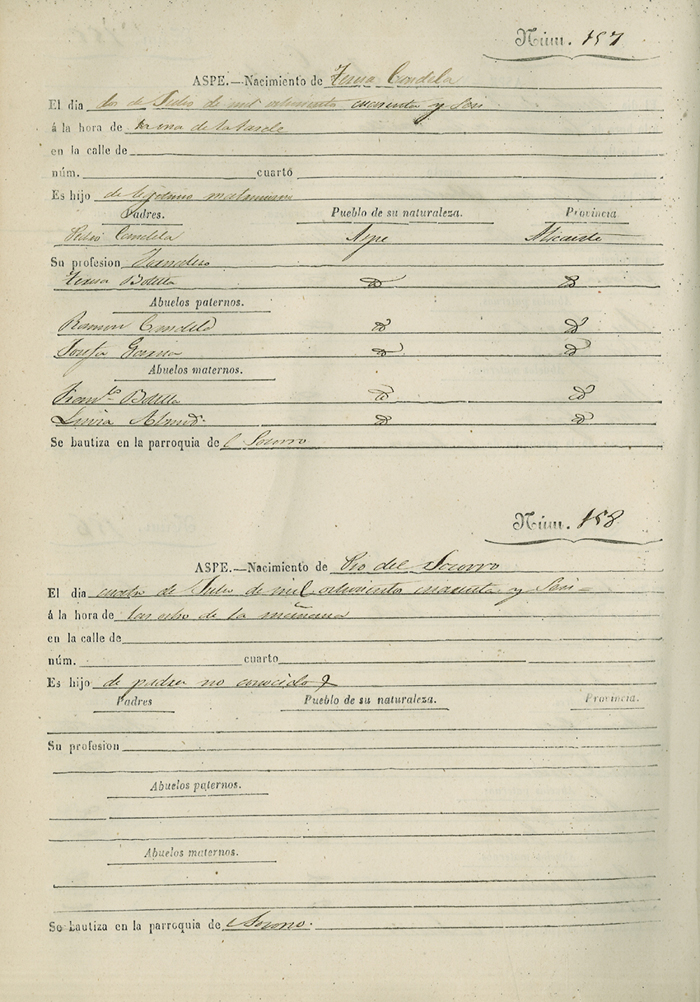 Núm. 157
ASPE.—Nacimiento de Teresa Candela
El dia dos de Julio de mil ochocientos cuarenta y seis
á la hora de la una de la tarde
en la calle de
núm. cuarto
Es hijo de legitimo matrimonio
Padres. Pueblo de su naturaleza. Provincia.
Pedro Candela Aspe Alicante
Su profesion
Teresa Botella
Abuelos paternos.
Ramon Candela
Josefa
Abuelos maternos.
Botella
Luisa
Se bautiza en la parroquia de Socorro
Núm. 158
ASPE.—Nacimiento de Pio del Socorro
El dia cuatro de Julio de mil ochocientos cuarenta y seis
á la hora de las ocho de la mañana
en la calle de
núm. cuarto
Es hijo de padres no conocidos
Padres Pueblo de su naturaleza. Provincia.
Su profesion
Abuelos paternos.
Abuelos maternos.
Se bautiza en la parroquia de Socorro.